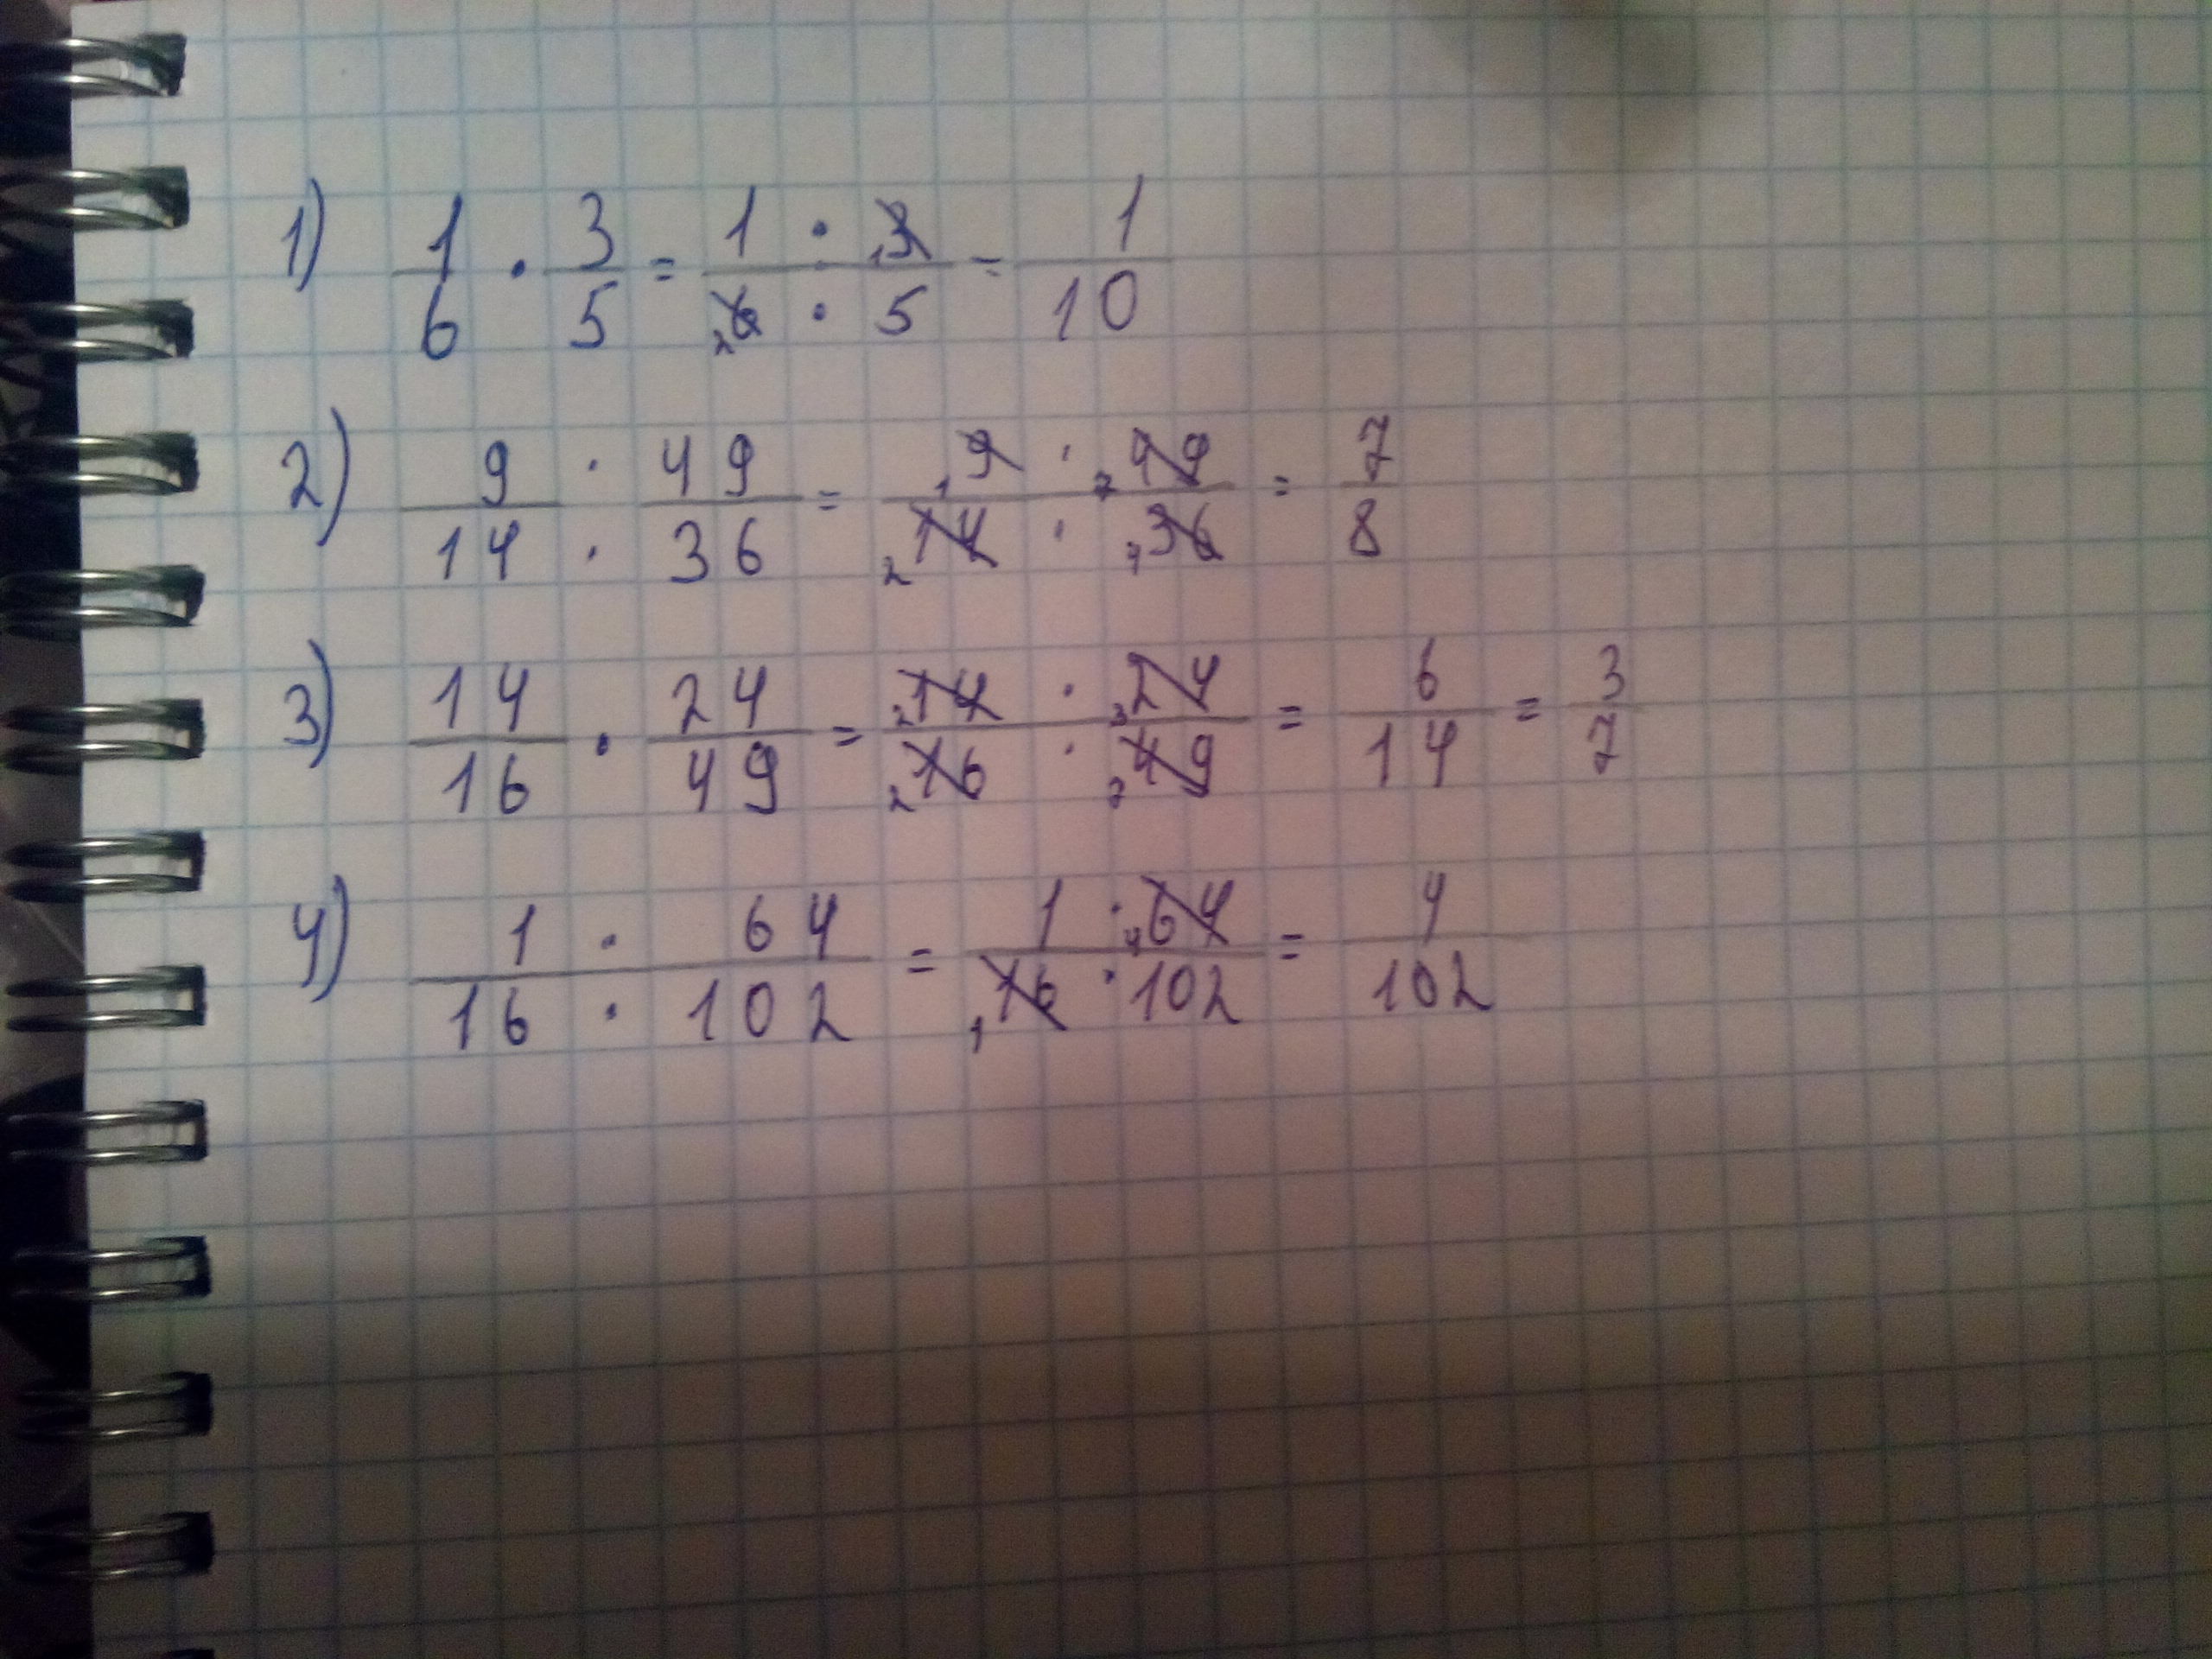 1) 1/6 · 3/5 = 1 · 3/6 · 5 = 1/10
2) 9 · 49/14 · 36 = 9 · 49/14 · 36 = 7/8
3) 14/16 · 24/49 = 14 · 24/16 · 49 = 6/14 = 3/7
4) 1 · 64/16 · 102 = 1 · 64/16 · 102 = 4/102